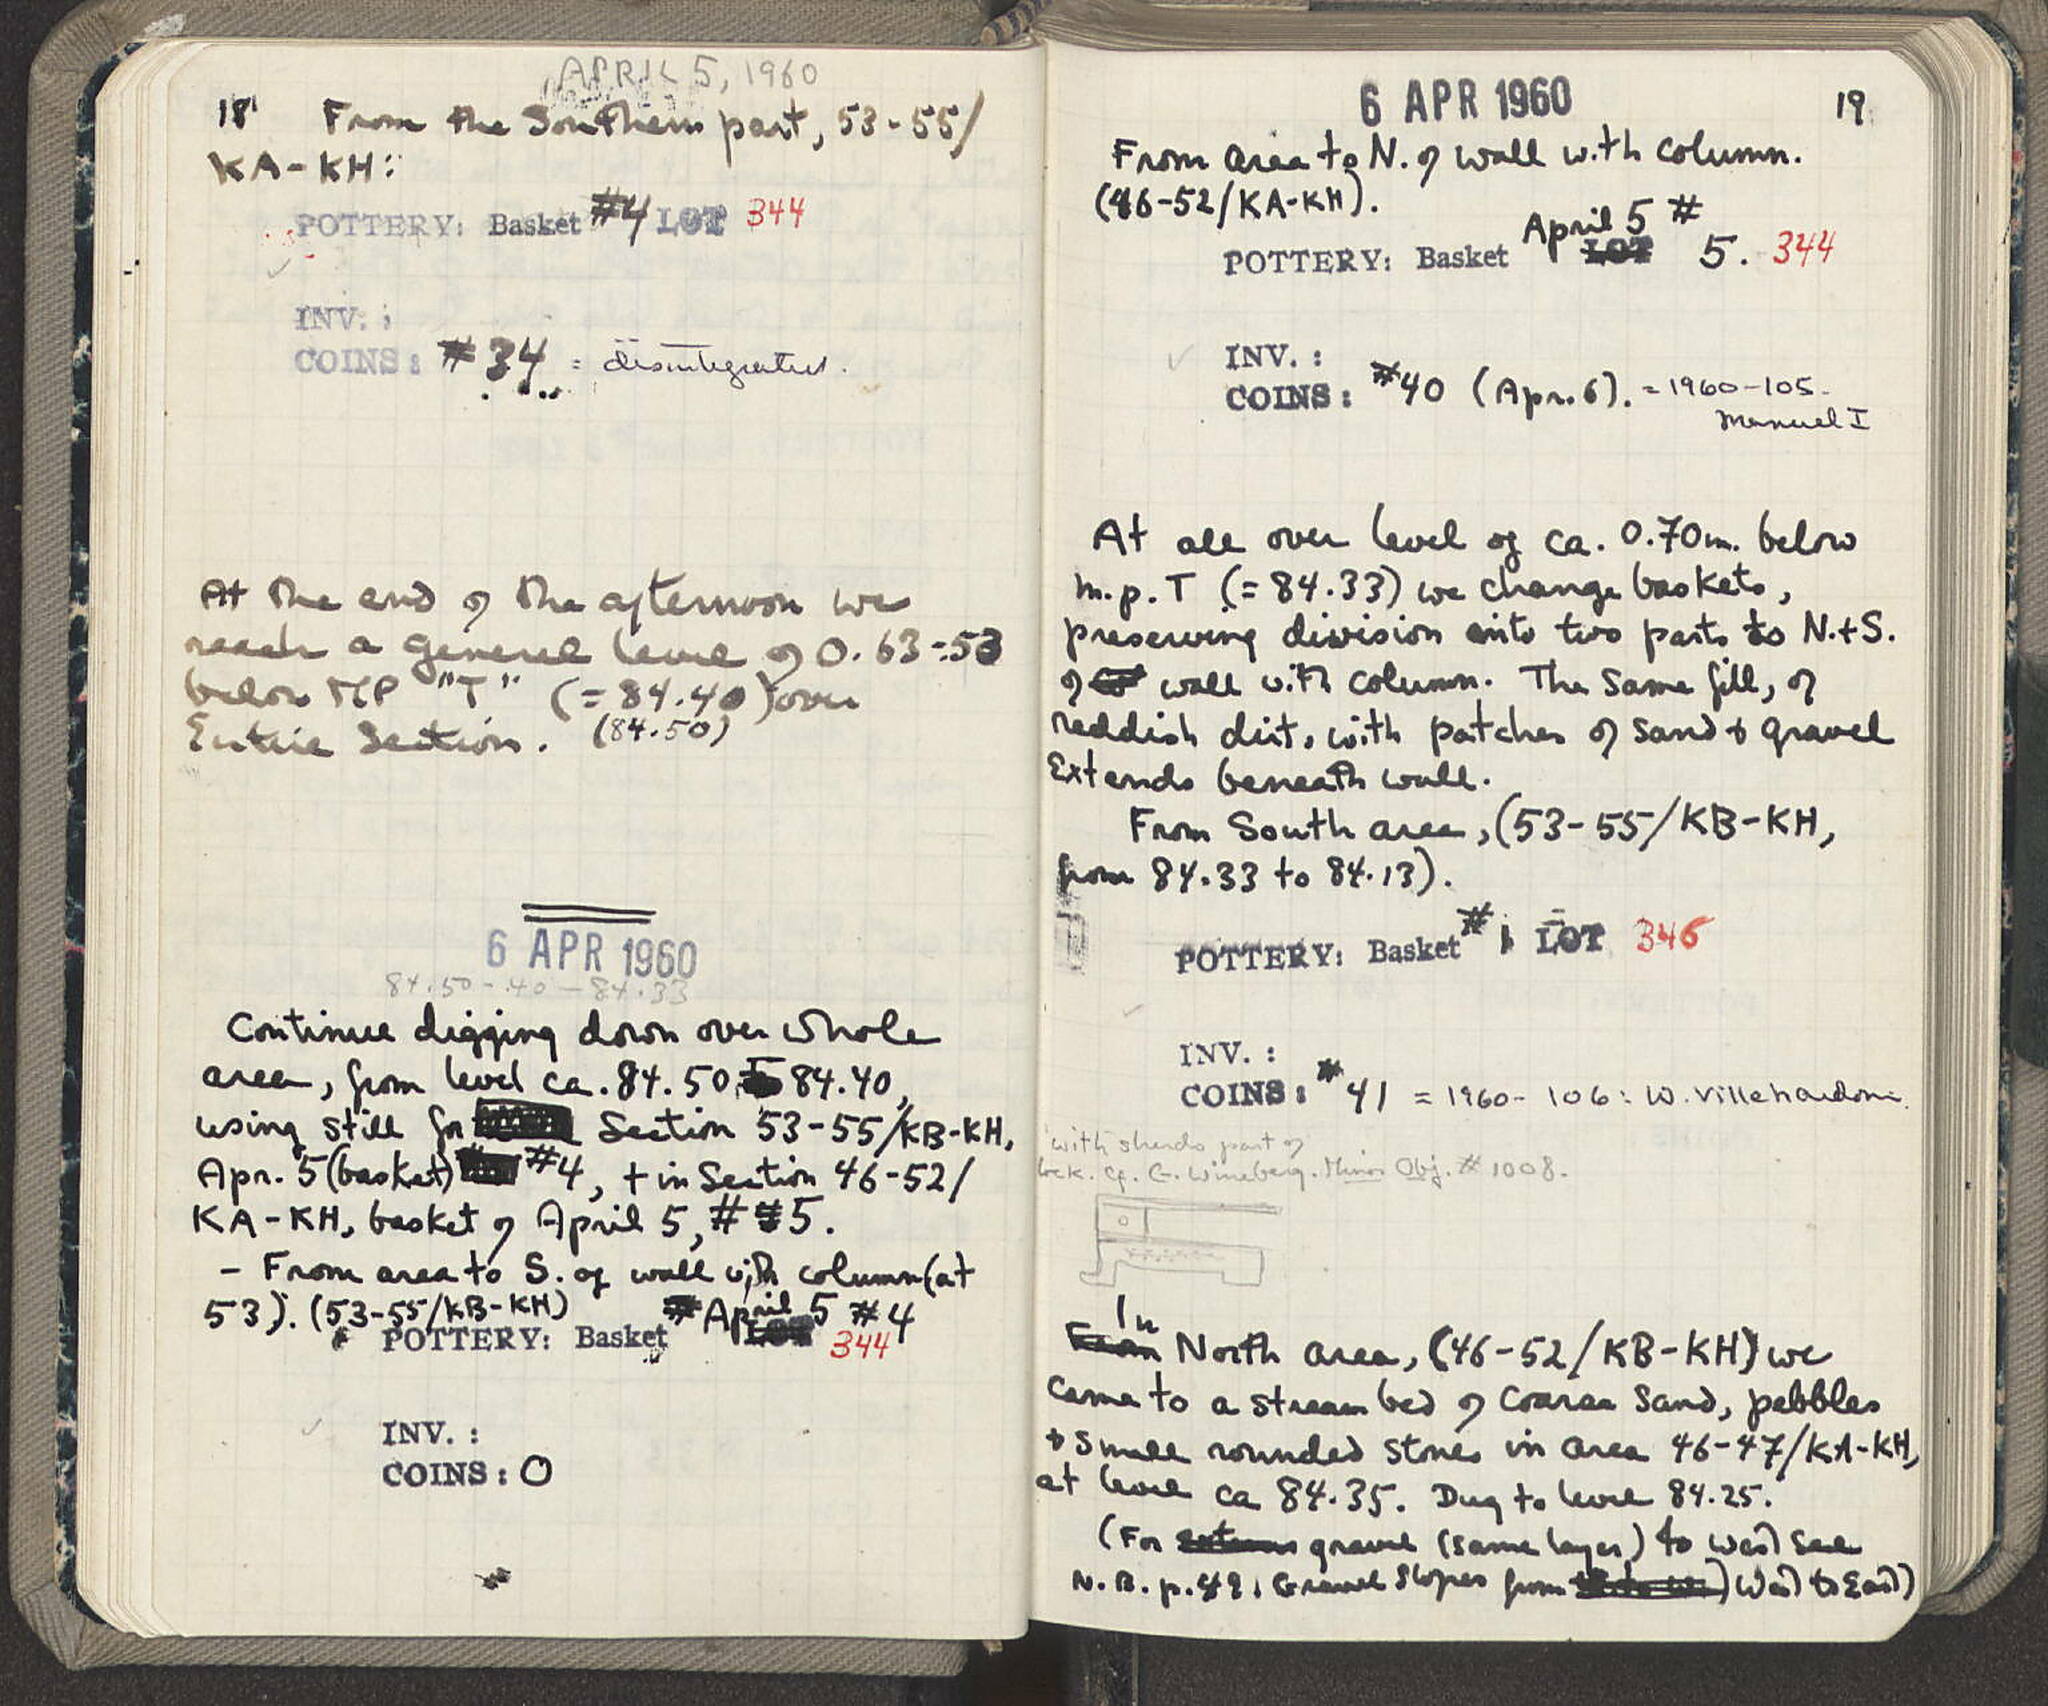 APRIL 5, 1960
18 From the Southern part, 53-55/
KA-KH:
POTTERY: Basket #4 LOT 344
INV.:
COINS: #34 = disintegrated.
At the end of the afternoon we
reach a general level of 0.63-.53
below MP "T" (= 84.40) over
(84.50)
Entire Section.
6 APR 1960
84.50-.40 - 84.33
Continue digging down over whole
area, from level ca. 84.50 to 84.40,
using still for Section 53-55/KB-KH,
Apr. 5 (basket) #4, + in Section 46-52/
KA-KH, basket of April 5, #5.
- From area to S. of wall with column (at
53). (53-55/KB-KH)
POTTERY: Basket # April 5 #4
LOT 344
INV. :
COINS: 0
6 APR 1960 19
From area to N. of wall with column.
(46-52/KA-KH).
POTTERY: Basket April 5 # LOT 5. 344
INV. :
COINS: #40 (Apr. 6). = 1960-105-
Manuel I
At all over level of ca. 0.70m. below
m.p. T (= 84.33) we change baskets,
preserving division into two parts to N.+S.
of wall with column. The same fill, of
reddish dirt, with patches of sand & gravel
Extends beneath wall.
From South area, (53-55/KB-KH,
from 84.33 to 84.13).
POTTERY: Basket #1 LOT 346
INV. :
COINS: #41 = 1960-106: W. Villehardouin.
with sherds part of
lock. cf. G. Wineberg. Minor Obj. #1008.
In
From North area, (46-52/KB-KH) we
came to a stream bed of coarse sand, pebbles
+ small rounded stones in area 46-47/KA-KH,
at level ca 84.35. Dug to level 84.25.
(For gravel (same layer) to west see
N.B. p.49. Gravel slopes from West to East)